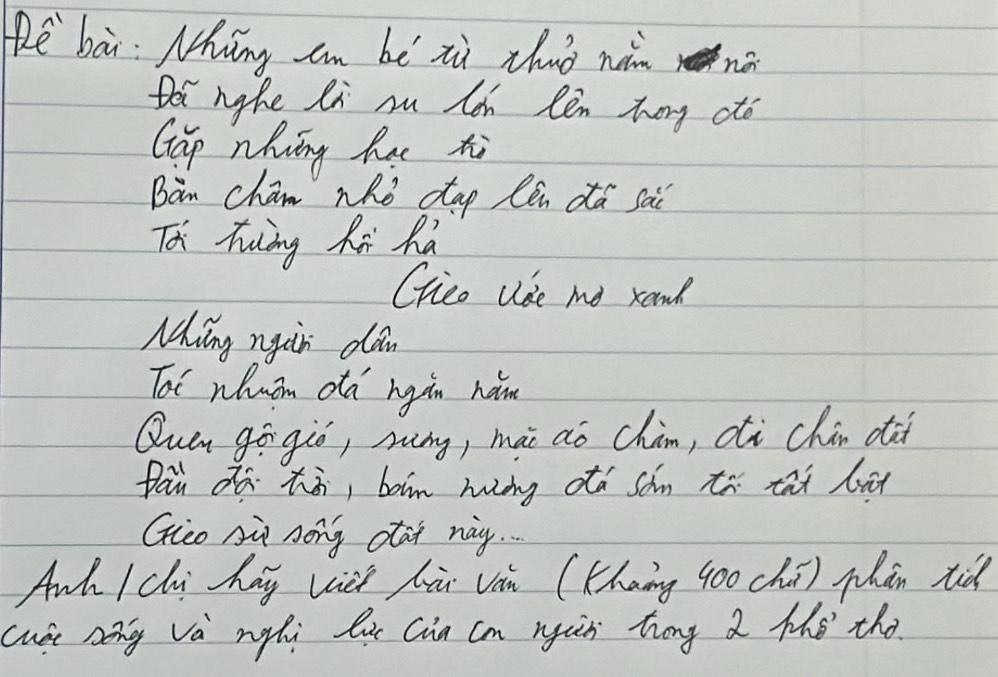 Đề bài: Những em bé từ thuở nằm nôi
Đã nghe lời ru lớn lên trong đó
Gặp những học trò
Bàn chân nhỏ đạp lên đá sắc
Tới trường hối hả
Gieo ước mơ xanh
Những người dân
Tóc nhuộm đá ngàn năm
Quen gội gió, sương, mặc áo chàm, đi chân đất
Đầu đội trời, bám nương đá sớm tối tất bật
Gieo sự sống đất này...
Anh / chị hãy viết bài văn (Khoảng 400 chữ) phân tích
cuộc sống và nghị lực của con người trong 2 khổ thơ.